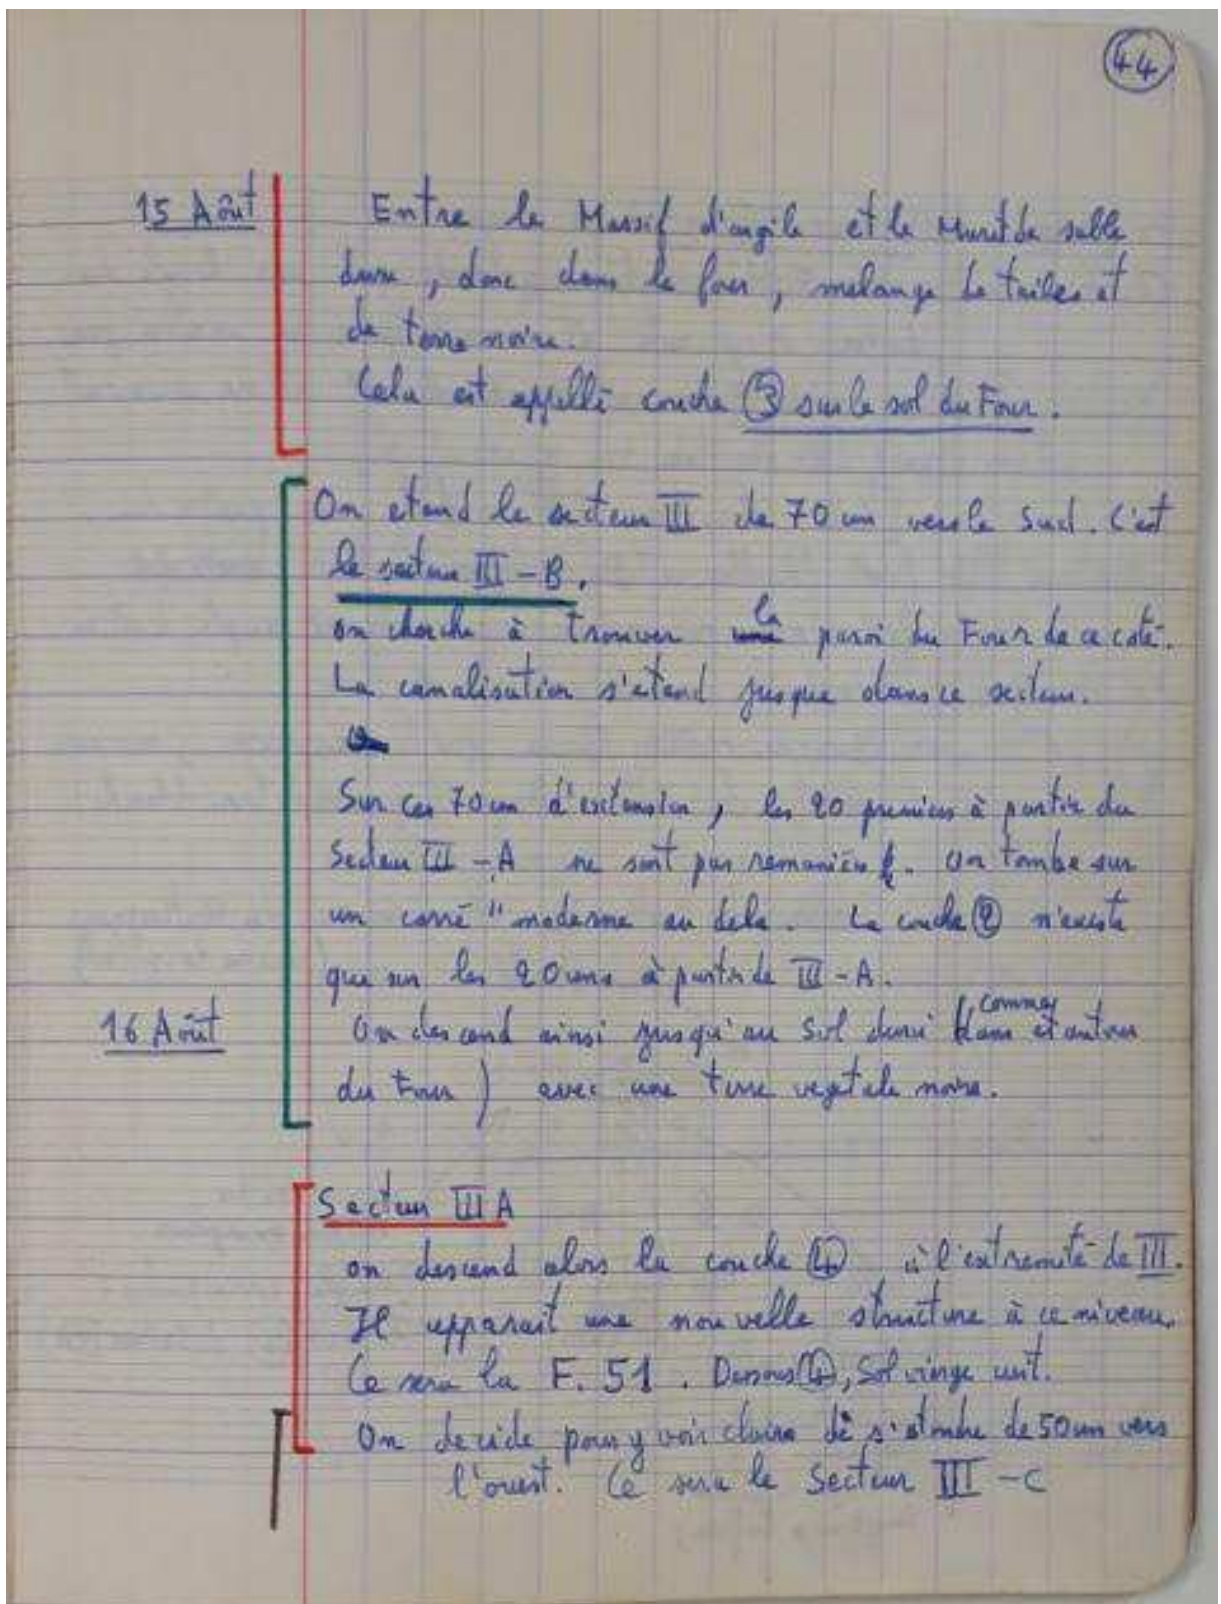 44
15 Août
Entre le Massif d'argile et le Muret de sable
durci, donc dans le four, melange de tuiles et
de terre noire.
Cela est appellé couche ③ sur le sol du Four.
On etend le secteur III de 70 cm vers le Sud. C'est
le secteur III - B.
on cherche à trouver la paroi du Four de ce coté.
La canalisation s'etend jusque dans ce secteur.
Sur ces 70 cm d'extension, les 20 premiers à partir du
Secteur III - A ne sont pas remaniés. On tombe sur
un carré "moderne au dela. La couche ② n'existe
que sur les 20 cms à partir de III - A.
16 Août
On descend ainsi jusqu'au Sol durci (comme dans et autour
du Four) avec une terre vegetale noire.
Secteur III A
on descend alors la couche ④ à l'extremité de III.
Il apparait une nouvelle structure à ce niveau.
Ce sera la F. 51. Dessous ④, Sol vierge cuit.
On decide pour y voir claire de s'etendre de 50 cm vers
l'ouest. Ce sera le Secteur III - C